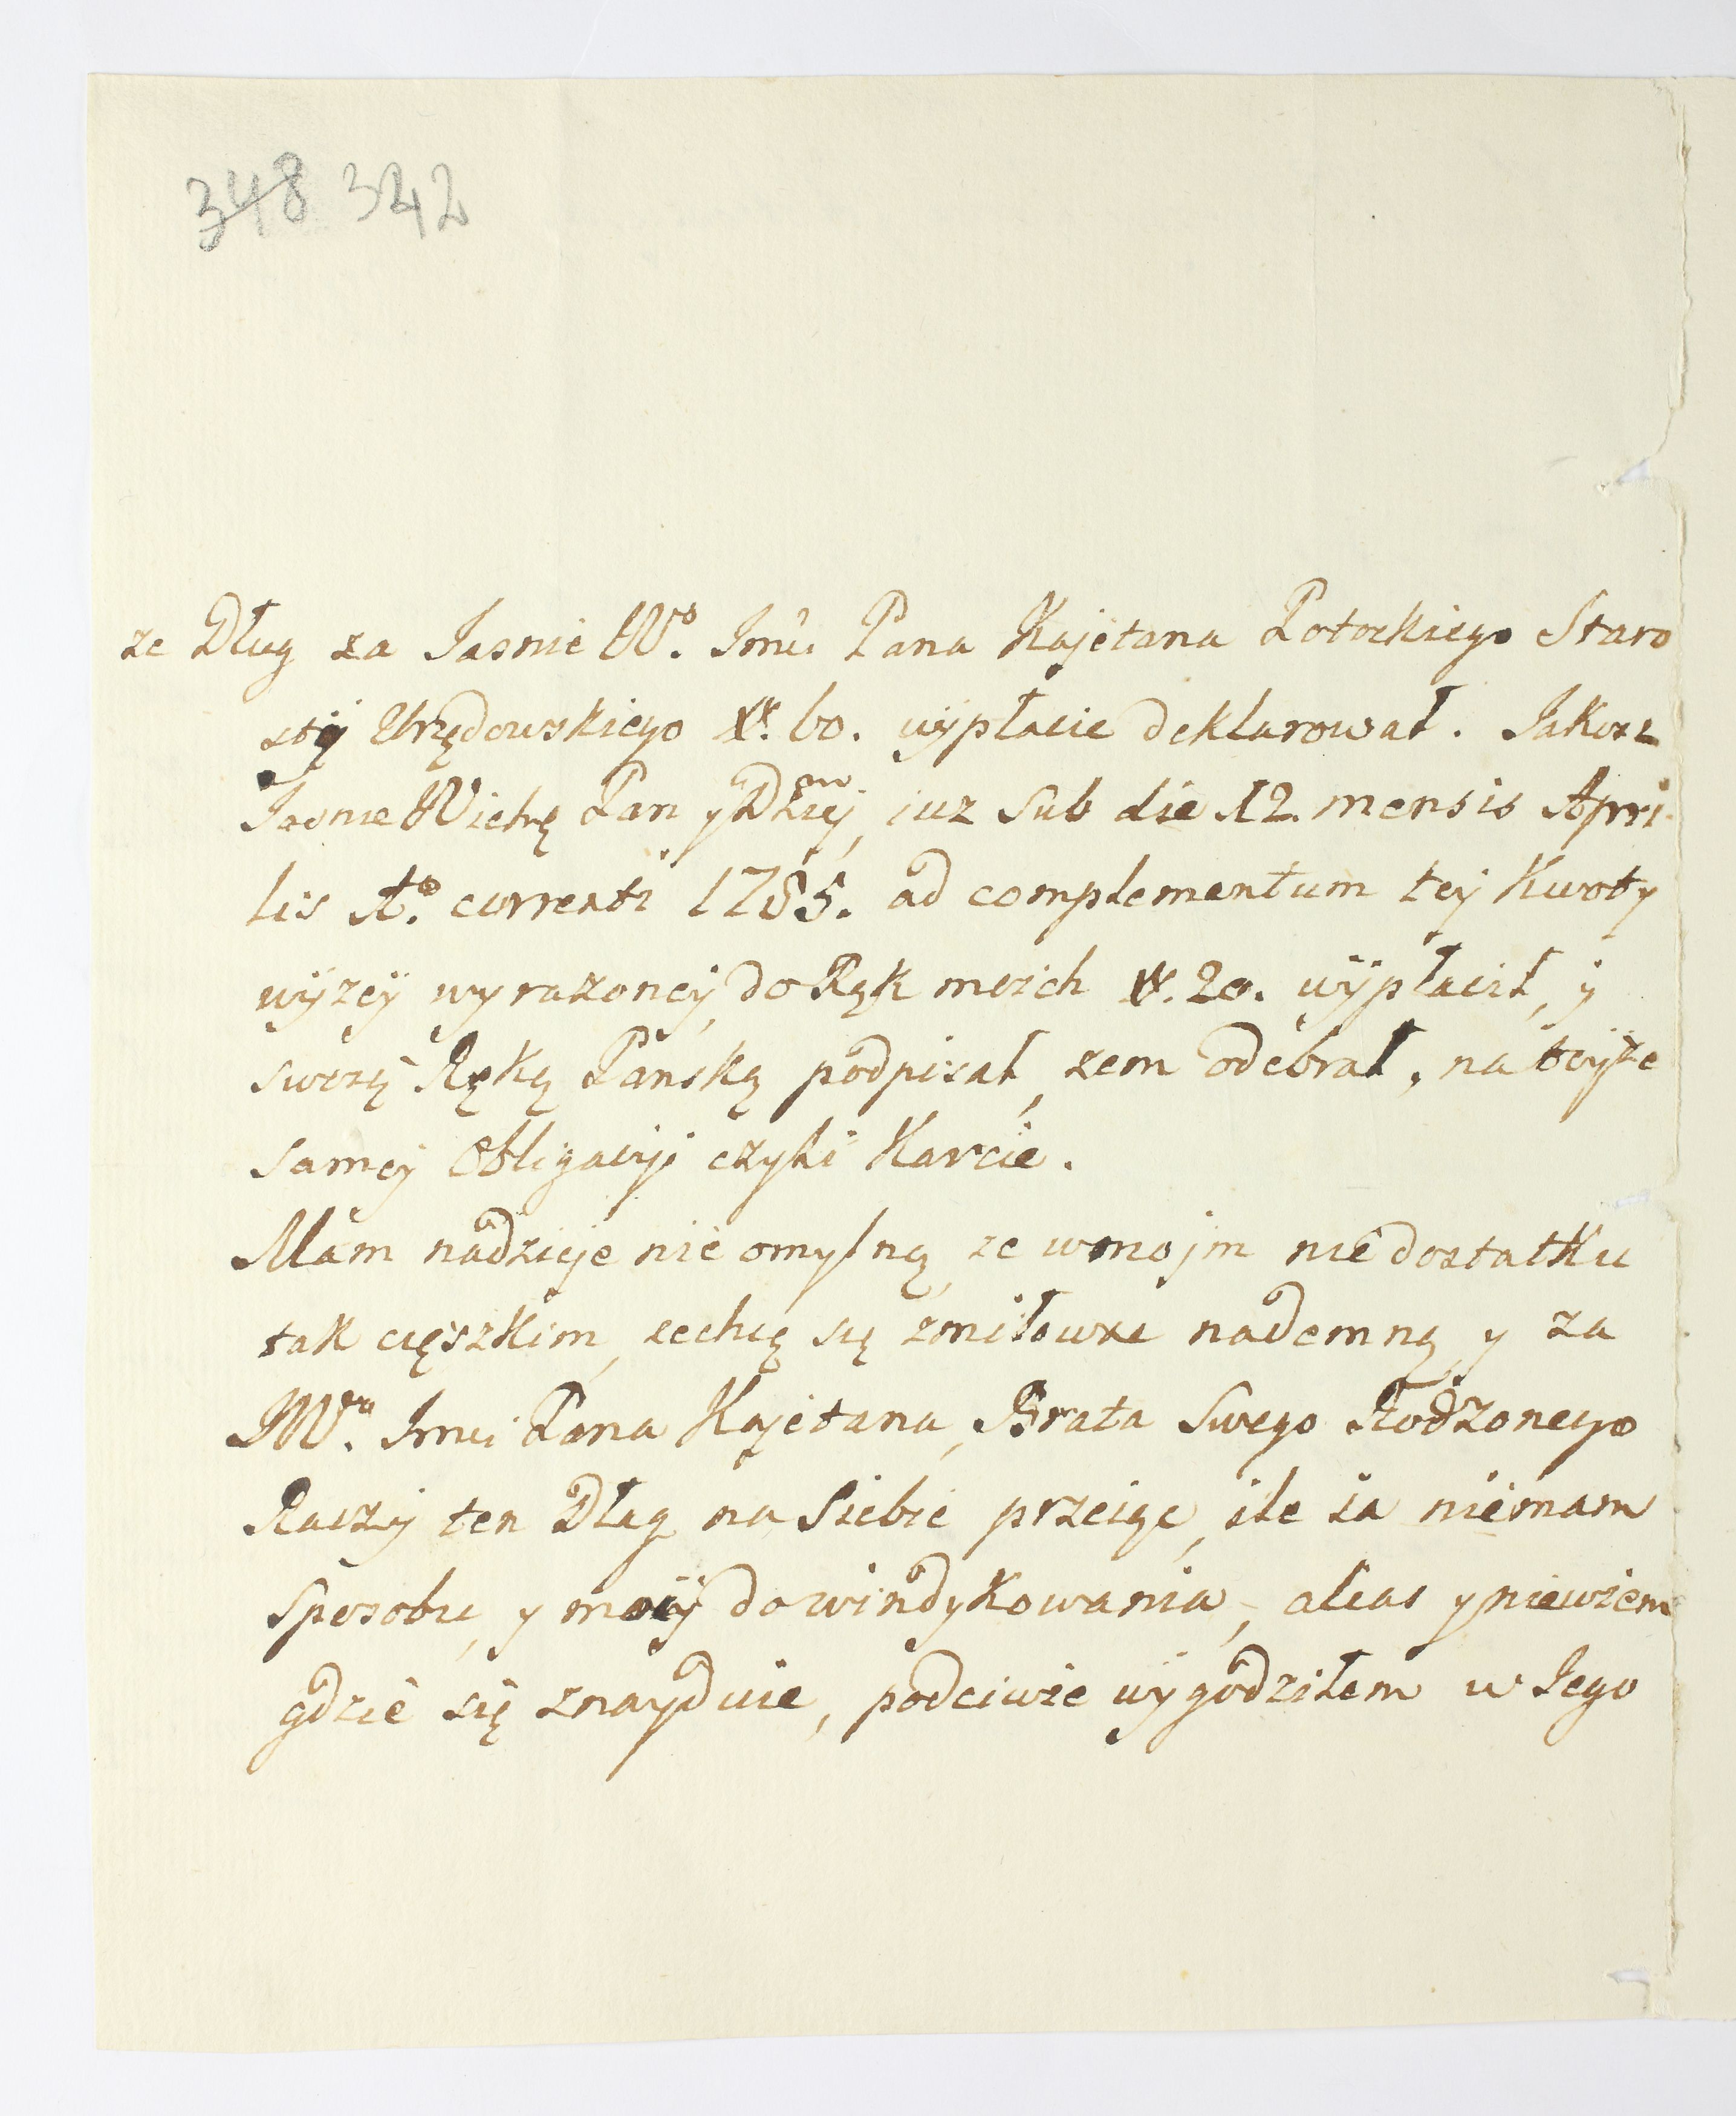 348 342
ze Dług za Jasnie W⁰. Jmci Pana Kajetana Potockiego Staro
sty Urzędowskiego #. 60. wÿpłacic deklarował. Jakosz
Jasnie Wielmożny Pan y Dziej, iuz Sub die 12. mensis Apri-
lis A⁰. currenti 1785. ad complementum tey Kwoty
wÿzeÿ wyrazoneÿ, do Rąk moich #. 20. wÿpłacił, y
swoią Ręką Panską podpisał, zem odebrał, na teyże
samey Obligacyi czyli Karcie.
Mam nadzieje nie omylną, ze w moim niedostatku
tak cięszkim, zechcę się zmiłowac nademną, y za
JWᵃ. Jmci Pana Kajetana, Brata Swego Rodzonego
Raczy ten Dług na Siebie przeiąc, ile ia niemam
Sposobu, y moÿ do windykowania, alias y niewiem
gdzie się znayduie, podciwie wÿgodziłem w Jego